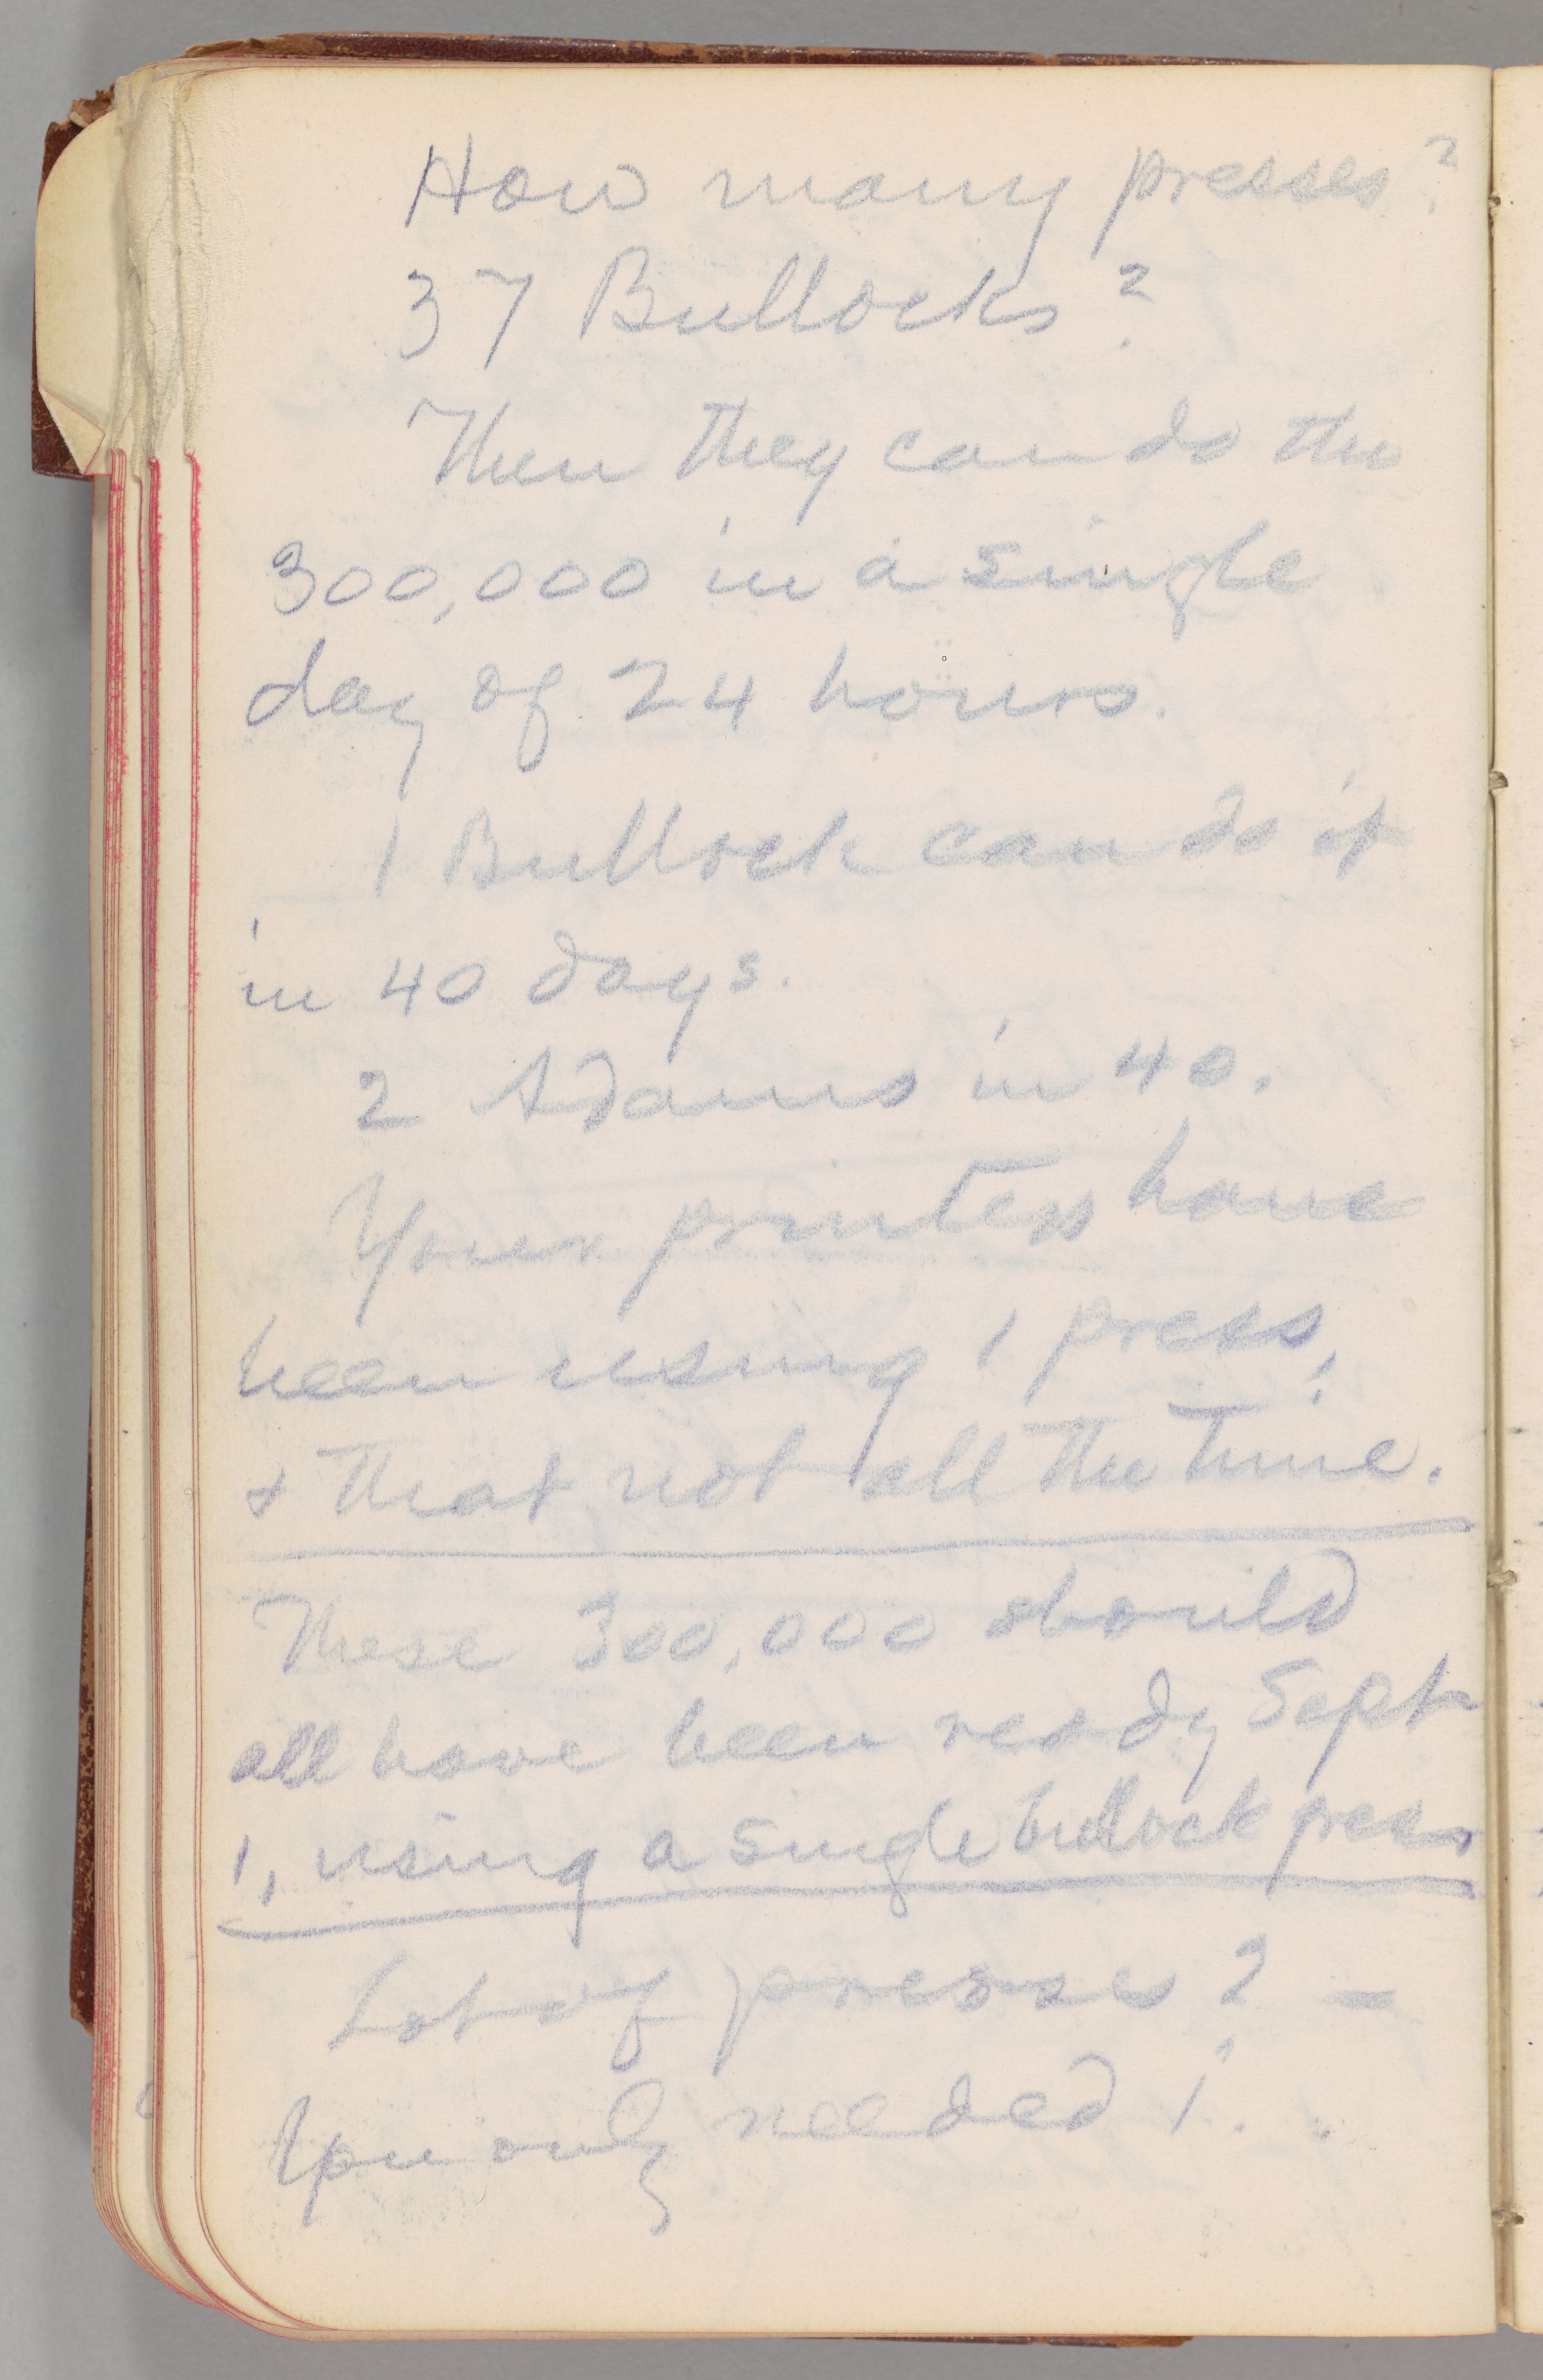 How many presses?
37 Bullocks?
Then they can do the
300,000 in a single
day of 24 hours.
1 Bullock can do it
in 40 days.
2 Adams in 40.
Your printers have
been using 1 press,
& that not all the time.
These 300,000 should
all have been ready Sept
1, using a single bullock press
Lot of presses? —
You only needed 1.